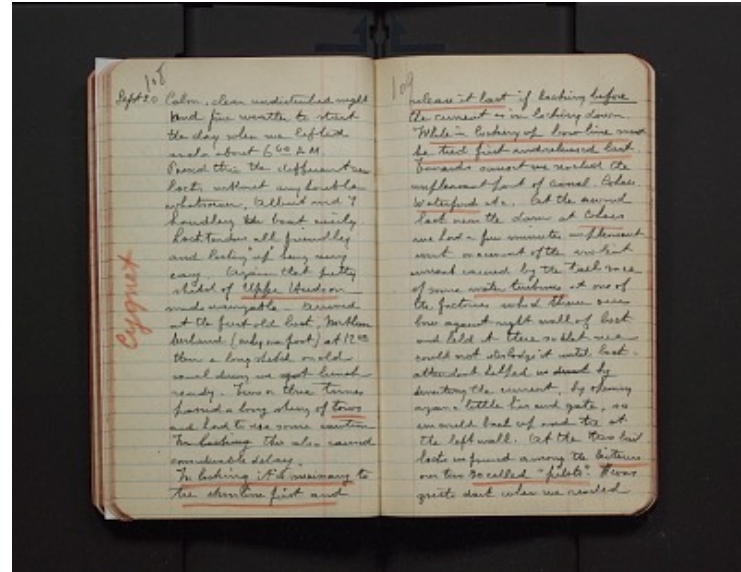 108
Sept 20 Calm, clear undisturbed night
and fine weather to start
the day when we left
about 6 00 A.M.
Passed thru the different
locks without any trouble
whatsoever, Albert and I
handling the boat easily
Locktenders all friendly
and locking "up" being very
easy. Again that pretty
stretch of Upper Hudson
made navigable - Arrived
at the first old lock, Northum
berland (only one foot) at 12 00
then a long stretch on old
canal during we got lunch
ready. Two or three times
passed a long string of tows
and had to use some caution
In locking this also caused
considerable delay.
In locking it is necessary to
tie the sternline first and
Cygnet
109
release it last if locking before
the current as in locking down.
While in locking up bow line must
be tied first and released last.
Towards sunset we reached the
unpleasant part of canal. Cohoes
Waterford etc. At the second
lock near the dam at Cohoes
we had a few minutes unpleasant
work on account of the violent
current caused by the tail race
of some water turbines at one of
the factories which threw our
bow against right wall of lock
and held it there so that we
could not dislodge it until lock-
attendant helped us by
deviating the current, by opening
again a little his end gate, so
we could back up and tie at
the left wall. At the two last
locks we found among the
our two so called "pilots" It was
quite dark when we reached